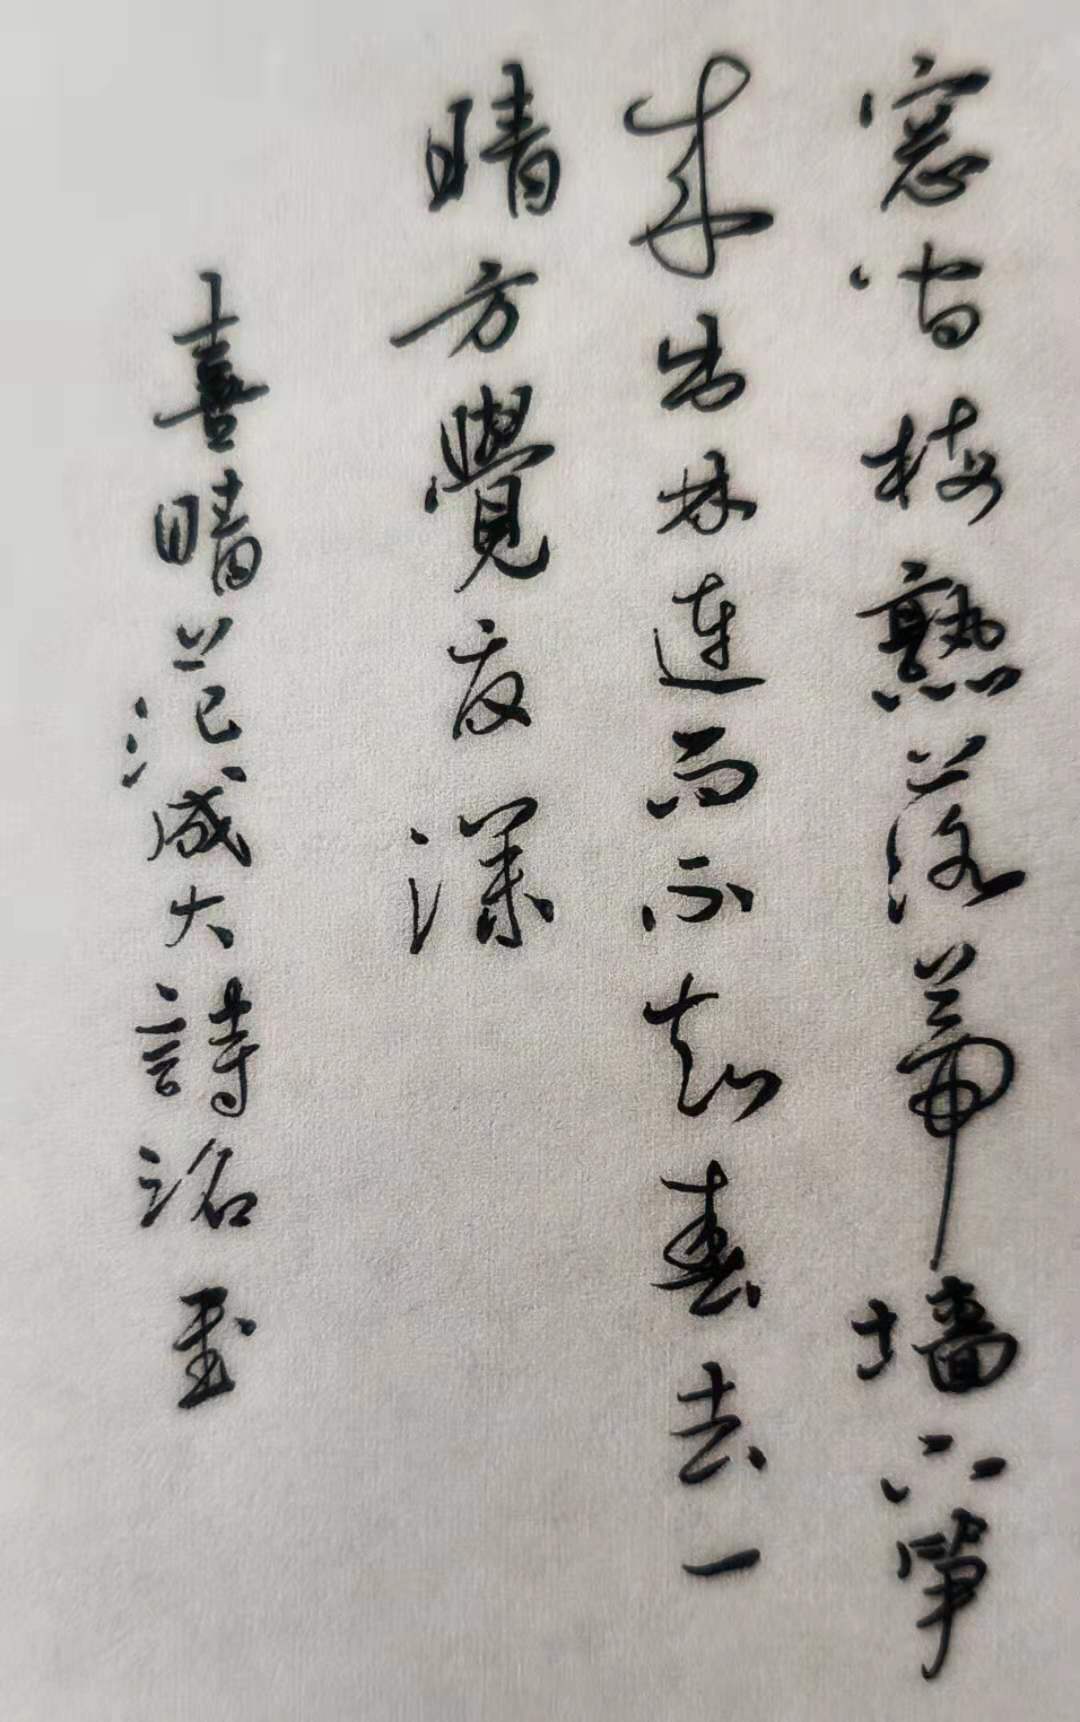 窓间梅熟落蒂墙下笋
成出林连雨不知春去一
晴方覺夏深
喜晴范成大詩